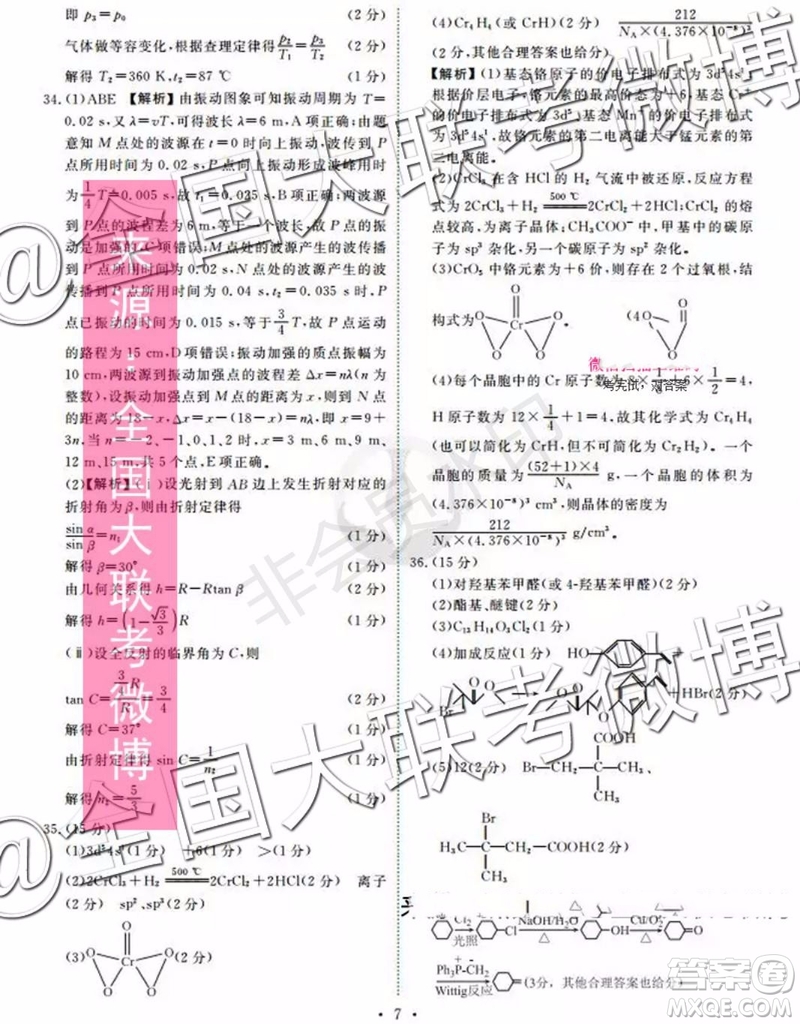 即 p₃=p₀ (2分)
气体做等容变化,根据查理定律得p₂/T₁=p₃/T₂ (2分)
解得 T₂=360 K,t₂=87 ℃ (1分)
34.(1)ABE 【解析】由振动图象可知振动周期为 T=
0.02 s,又 λ=vT,可得波长为 6 m,A项正确;由题
意知 M 点处的波源在 t=0 时开始振动,波传到 P
点所用时间为 0.02 s,P 点向上振动形成波峰用时
为 1/4 T=0.005 s,故 t₁=0.035 s,B项正确;两波源
到 P 点的波程差为 6 m,等于一个波长,故 P 点振
动是加强的,C项错误;M 点处的波源产生的波传播
到 P 点所用时间为 0.02 s,N 点处的波源产生的波传
播到 P 点所用时间为 0.04 s,t₂=0.035 s 时,P
点已振动的时间为 0.015 s,等于 3/4 T,故 P 点运动
的路程为 15 cm,D项错误;振动加强的质点振幅为
10 cm,两波源到质点的距离差 Δx=nλ(n 为
整数),设振动加强的质点到 M 点的距离为 x,到 N 点
的距离为 18-x,Δx=x-(18-x)=nλ,即 x=9+
3n,当 n=-2、-1、0、1、2 时,x=3 m、6 m、9 m、
12 m、15 m,共 5 点,E项正确。
(2)【解析】(ⅰ)设光射到 AB 边上发生折射对应的
折射角为 β,则由折射定律得
sin α/sin β=n₁ (1分)
解得 β=30° (1分)
由几何关系得 h=R-Rtan β (2分)
解得 h=(1-√3/3)R (1分)
(ⅱ)设全反射的临界角为 C,则
tan C=(3/4 R)/R=3/4 (2分)
解得 C=37° (1分)
由折射定律得 sin C=1/n₂ (1分)
解得 n₂=5/3 (1分)
35.(15分)
(1)3d⁵4s¹(1分) +6(1分) >(1分)
(2)2CrCl₃+H₂ 500 ℃ 2CrCl₂+2HCl(2分) 离子
(2分) sp²、sp³(2分)
(3) O Cr O O O O (2分)
(4)Cr₄H₄(或 CrH)(2分) 212/(N_A×(4.376×10⁻⁸)³)
(2分,其他合理答案也给分)
【解析】(1)基态铬原子的价电子排布式为 3d⁵4s¹,
根据价层电子下,铬元素的最高价态为+6,基态 Cr⁺
的价电子排布式为 3d⁵,基态 Mn⁺ 的价电子排布
式为 3d⁵4s¹,故铬元素的第二电离能大于锰元素的第
二电离能。
(2)CrCl₃ 在含 HCl 的 H₂ 气流中被还原,反应方程
式为 2CrCl₃+H₂ 500 ℃ 2CrCl₂+2HCl;CrCl₃ 的熔
点较高,为离子晶体;CH₃COO⁻ 中,甲基中的碳原
子为 sp³ 杂化,另一个碳原子为 sp² 杂化。
(3)CrO₅ 中铬元素为+6 价,则存在 2 个过氧根,结
构式为 O Cr O O O O 。 (4 O O O O
(4)每个晶胞中的 Cr 原子数为 8×1/8+6×1/2=4,
H 原子数 12×1/4+1=4,故其化学式为 Cr₄H₄
(可以简化为 CrH,但不可简化为 Cr₂H₂)。一个晶
胞的质量为 (52+1)×4/N_A g,一个晶胞的体积为
(4.376×10⁻⁸)³ cm³,则晶体的密度为
212/(N_A×(4.376×10⁻⁸)³) g/cm³。
36.(15分)
(1)对羟基苯甲醛(或 4-羟基苯甲醛)(2分)
(2)酯基、醚键(2分)
(3)C₁₃H₁₆O₃(2分)
(4)加成反应(1分) HO
Br O → O O +HBr(2分)
(5)12(2分) Br—CH₂ COOH CH₃ CH₃ 、
Br CH₃ CH₃ CH₂COOH(2分)
Cl₂ 光照 Cl NaOH/H₂O △ OH Cu/O₂ △ O
Ph₃P⁺—CH₂⁻ Wittig反应 (3分,其他合理答案也给分)
· 7 ·
来源:全国大联考微博
@全国大联考微博
@全国大联考微博
非会员水印
答案圈
MXQE.COM